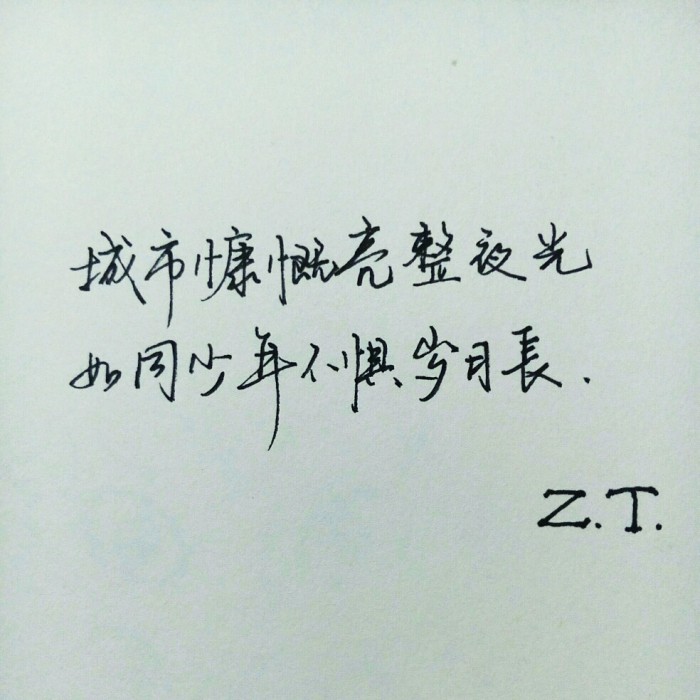 城市慷慨亮整夜光
如同少年不惧岁月長.
Z.T.